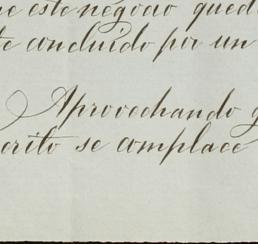 ue este negocio qued
te concluido por un
Aprovechando q
crito se complace